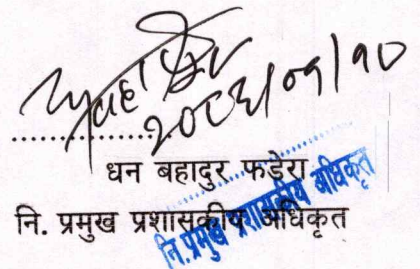 २०८२/०१/१०
धन बहादुर फडेरा
नि. प्रमुख प्रशासकीय अधिकृत
नि.प्रमुख प्रशासकीय अधिकृत